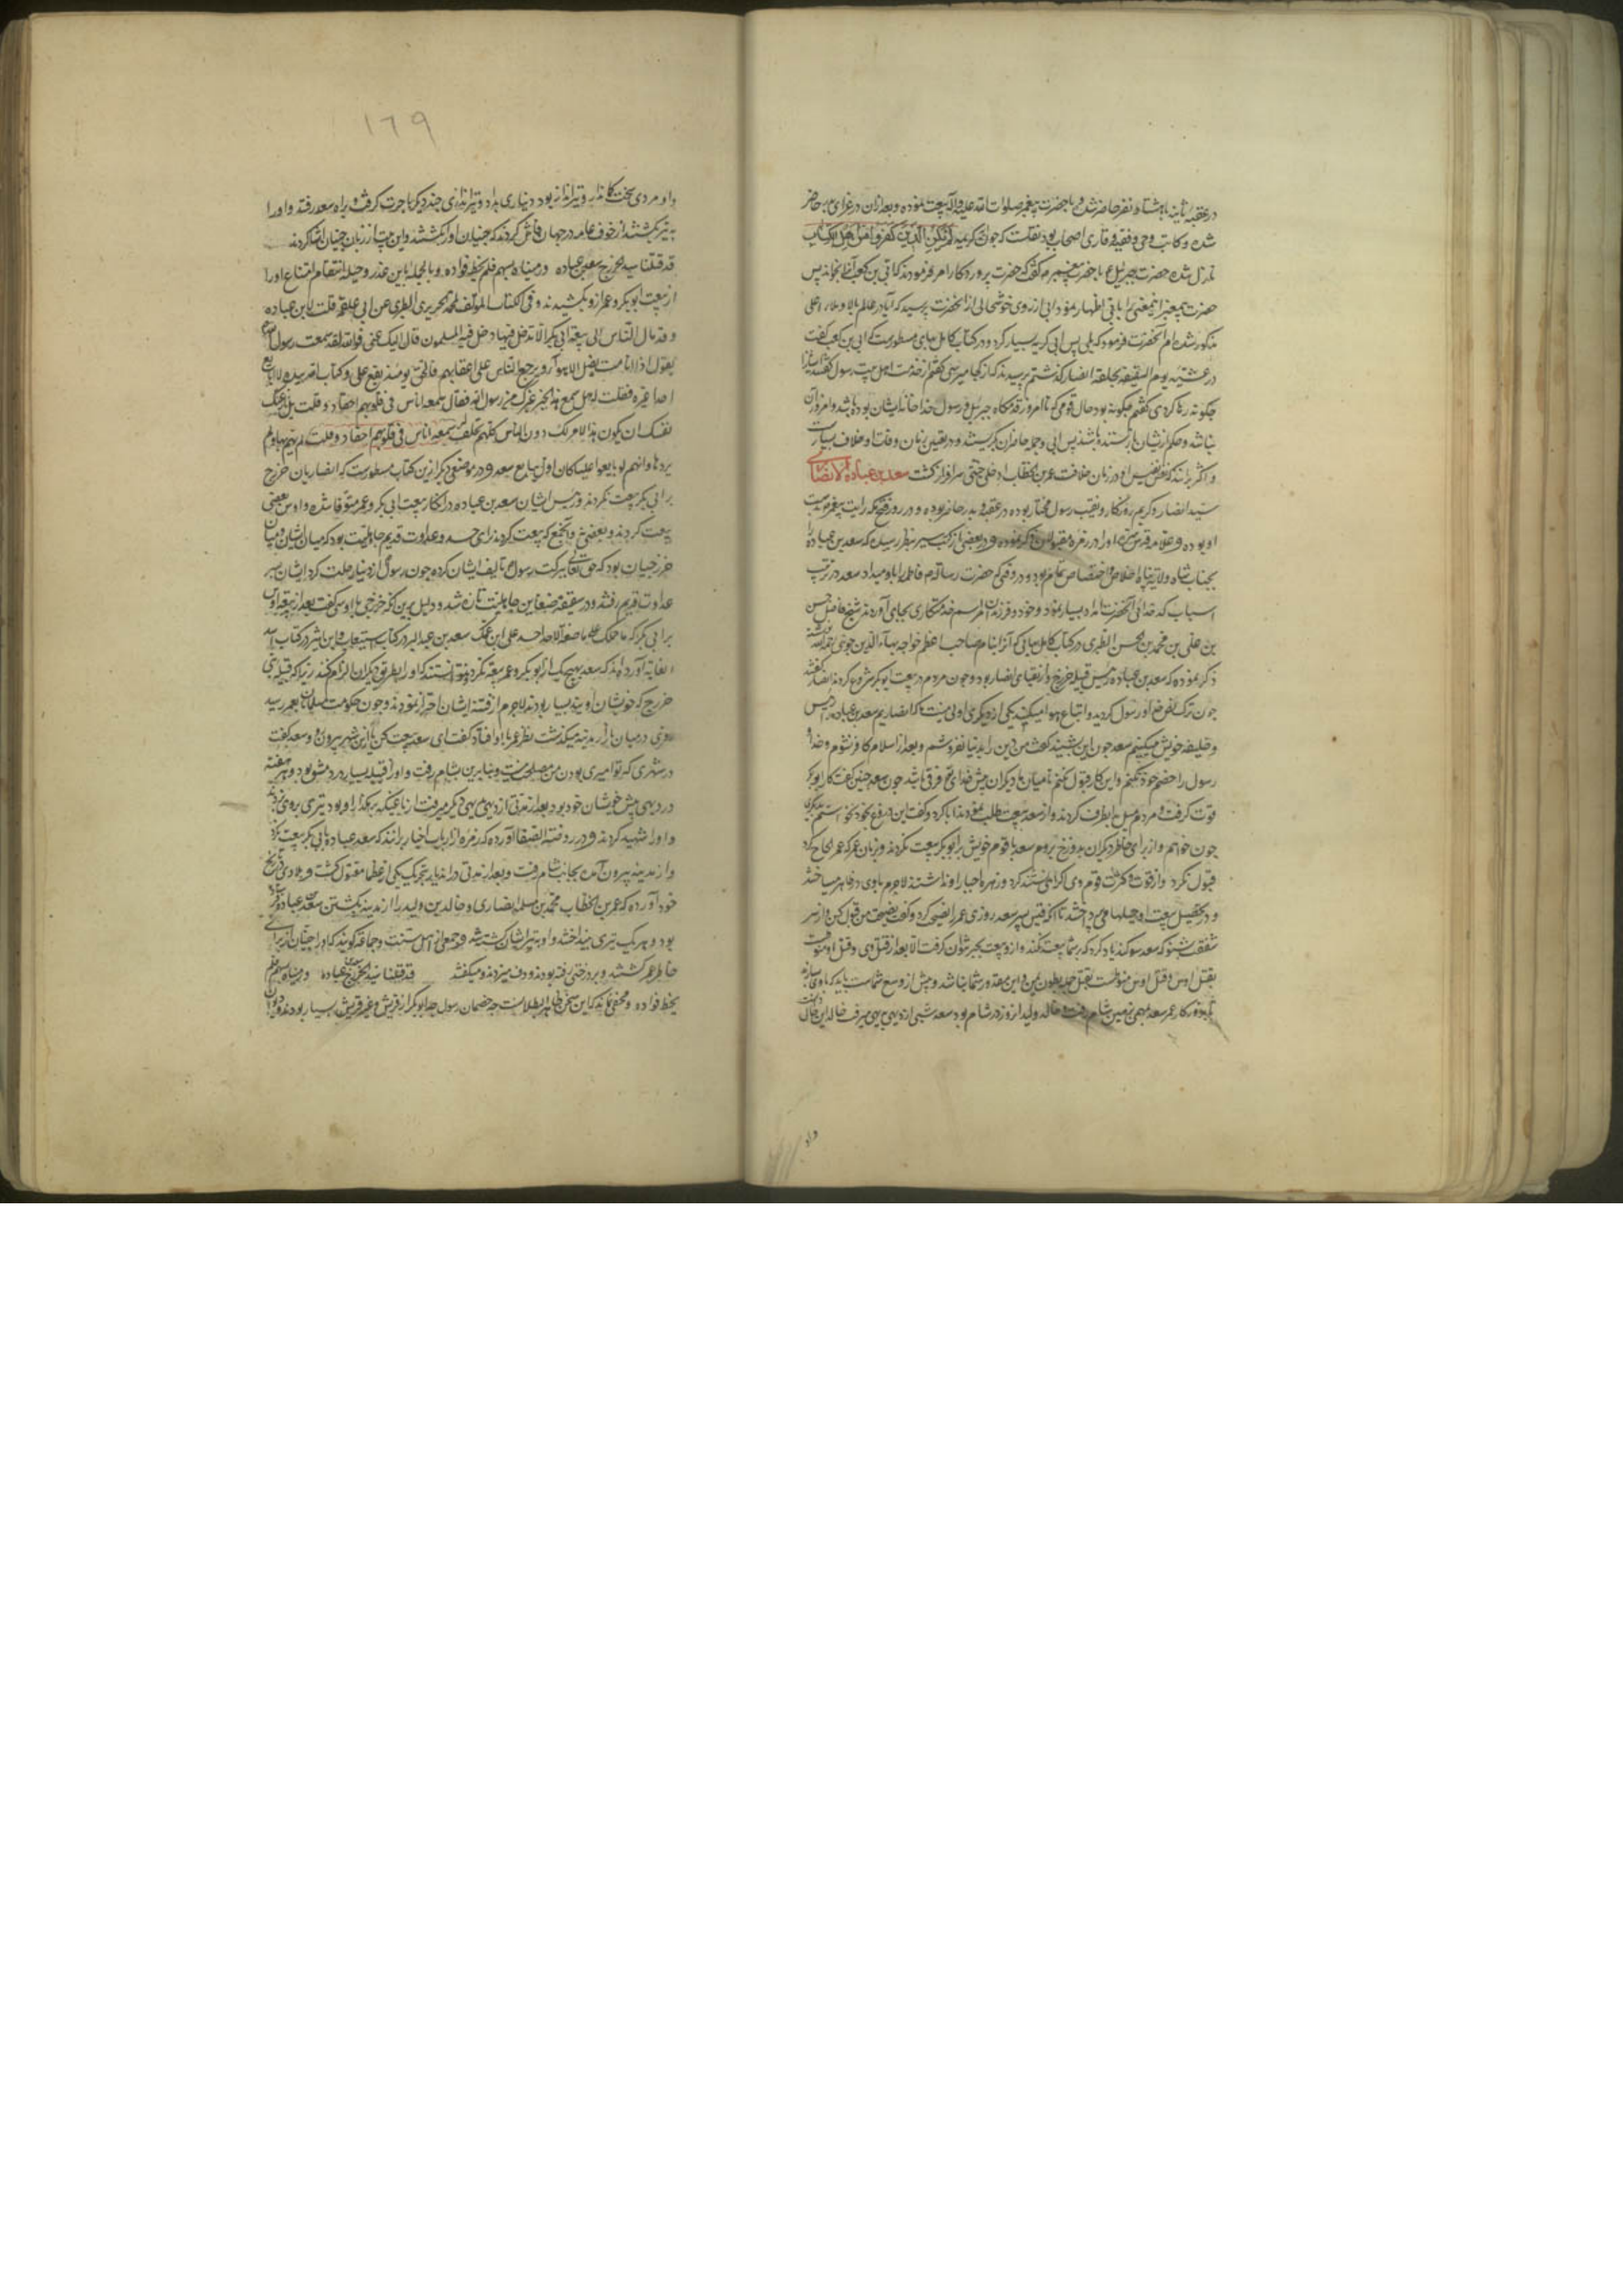 در عقبه ثانیه با هشتاد نفر حاضر شده و با حضرت پیغمبر صلوات الله علیه و آله بیعت نموده و بعد از آن در غزای بدر حاضر
شده و کاتب وحی و فقیه و قاری اصحاب بود نقلست که چون آیه کریمه لم یکن الذین کفروا من اهل الکتاب
نازل شده حضرت جبرئیل ع با حضرت پیغمبر م گفت که حضرت پروردگار امر فرموده که با ابی بن کعب آنرا بخواند پس
حضرت پیغمبر اینمعنی را با ابی اظهار نمود ابی از روی خوشحالی از آنحضرت پرسید که آیا در عالم بالا و ملاء اعلی
مذکور شده‌ام آنحضرت فرمود که بلی پس ابی گریه بسیار کرد و در کتاب کامل بهای مسطورست که ابی بن کعب گفت
در عشیه یوم السقیفه بحلقه انصار گذشتم پرسیدند که از کجا میرسی گفتم از خدمت اهل بیت رسول گفتند ایشانرا
چگونه رها کردی گفتم چگونه بود حال قومی که تا امروز قدمگاه جبرئیل و رسول خدا خانه ایشان بوده باشد و امروز آن
نباشد و حکم از ایشان باز ستنده باشند پس ابی و جمله حاضران بگریستند و در تعیین زمان وفات او خلاف بسیارست
و اکثر برانند که نفس نفیس او در زمان خلافت عمر بن الخطاب ادخلی جنتی سرافراز گشت سعد بن عباده الانصاری
سید انصار و کریم روزگار و نقیب رسول مختار بوده در عقبه و بدر حاضر بوده و در روز فتح مکه رایت پیغمبر بدست
او بوده و علامه قدس سره او را در زمره مقبولین ذکر نموده و در بعضی از کتب سیر بنظر رسیده که سعد بن عباده را
بجناب شاه ولایت پناه اخلاص و اختصاص تمام بود و در وقتی که حضرت رسالت م فاطمه را باو میداد سعد در ترتیب
اسباب کدخدائی آنحضرت امداد بسیار نمود و خود و فرزندان مراسم خدمتکاری بجای آوردند شیخ فاضل حسن
بن علی بن محمد بن الحسن الطبری در کتاب کامل بهایی که آنرا بنام صاحب اعظم خواجه بهاء الدین جوینی نوشته
ذکر نموده که سعد بن عباده رئیس قبیله خزرج و از نقبای انصار بود و چون مردم در بیعت ابوبکر شروع کردند انصار گفتند
چون ترک نص خدا و رسول کردید و اتباع هوا میکنید یکی از دیگری اولی نیست ما که انصاریم سعد بن عباده را رئیس
و خلیفه خویش میکنیم سعد چون این بشنید گفت من دین را بدنیا نفروشم و بعد از اسلام کافر نشوم و خدا و
رسول را خصم خود نکنم و این کار قبول نکنم تا میان ما و دیگران پیش خدای تع فرقی باشد چون سعد چنین گفت کار ابوبکر
قوت گرفت و مردم میل بطرف او کردند و از سعد بیعت طلب نمودند ابا کرد و گفت این دروغ بخود نخواستم بدیگری
چون خواهم و از برای خاطر دیگران بدوزخ نروم سعد با قوم خویش با ابوبکر بیعت نکردند و در زمان عمر که عمر الحاح کرد
قبول نکرد و از قوت و کثرت قوم وی اکراه نمی‌توانستند کرد و زهره اجبار او نداشتند لاجرم با وی در ظاهر میساختند
و در تحصیل بیعت او حیلها می‌پرداختند تا آنکه قیس پسر سعد روزی عمر را نصیحتی کرد و گفت نصیحت من قبول کن و از سر
شفقت بشنو که سعد سوگند یاد کرد که بشما بیعت نکند و از وی بیعت بجبر نتوان گرفت الا بعد از قتل وی و قتل او منوط است
بقتل اوس و قتل اوس منوط است بقتل جمله بطون یمن و این مقدور شما نباشد و بیش از وسع شماست باید که با وی بسازید
تا بدور کار عمر سعد بمهمی بزمین شام رفت و خالد ولید آن روز در شام بود سعد شبی از دیهی بدیهی میرفت خالد این حال دانست
واو
۱۶۹
و او مردی سخت کماندار و تیرانداز بود دیناری بداد و تیراندازی چند دیگر باجرت گرفت و براه سعد رفتند و او را
به تیر بکشتند از خوف عامه در جهان فاش کردند که جنیان او را بکشتند و این بیت از زبان جنیان انشا کردند
قد قتلنا سید الخزرج سعد بن عباده و رمیناه بسهم فلم نخط فؤاده و بالجمله باین عذر و حیله انتقام امتناع او را
از بیعت ابوبکر و عمر ازو بکشیدند و فی الکتاب المؤلف لمحمد بن جریر الطبری عن ابی علقمه قلت لابن عباده
و قد مال الناس الی بیعة ابی بکر الا تدخل فیما دخل فیه المسلمون قال الیک عنی فوالله لقد سمعت رسول الله ص
یقول اذا انا مت یضل الاهواء و یرجع الناس علی اعقابهم فالحق یومئذ مع علی و کتاب الله بیده لا نبایع
احدا غیره فقلت له هل سمع هذا الخبر غیرک من رسول الله فقال سمعه اناس فی قلوبهم احقاد و قلت بل نازعتک
نفسک ان یکون هذا الامر لک دون الناس کلهم فحلف سمعه اناس فی قلوبهم احقاد و قلت انه لم یهم بها و لم
یردها و انهم لو بایعوا علیا کان اول من بایع سعد و در موضعی دیگر ازین کتاب مسطورست که انصاریان خزرج
بر ابی بکر بیعت نکردند و رئیس ایشان سعد بن عباده در انکار بیعت ابی بکر و عمر متوفا شده و اوس بعضی
بیعت کردند و بعضی نه و آنجمع که بیعت کردند از برای حسد و عداوت قدیم جاهلیت بود که میان ایشان و میان
خزرجیان بود که حق تعالی ببرکت رسول ص تالیف ایشان کرده چون رسول از دنیا رحلت کرد ایشان بسر
عداوت قدیم رفتند و در سقیفه ضغاین جاهلیت تازه شد و دلیل برین آنکه خزرجی با اوسی گفت بعد از بیعت اوس
بر ابی بکر که ما حملک علی ما صنعت الا حسد علی ابن عمک سعد بن عبد البر در کتاب استیعاب و ابن اثیر در کتاب اسد
الغابه آورده‌اند که سعد بهیچیک از ابوبکر و عمر بیعت نکرد و نتوانستند که او را بطریق دیگران الزام کنند زیرا که قبیله بنی
خزرج که خویشان او بودند بسیار بودند لاجرم از فتنه ایشان احتراز نمودند و چون حکومت مسلمانان بعمر رسید
روزی در میان بازار مدینه میگذشت نظر عمر باو افتاد گفت ای سعد بیعت کن یا ازین شهر بیرون رو سعد گفت
در شهری که تو امیری بودن من مصلحت نیست و بنابرین بشام رفت و او را قبیله بسیار در دمشق بود و هر هفته
در دیهی پیش خویشان خود بود بعد از مدتی از دیهی بدیهی دیگر میرفت از باغیکه بر گذار او بود تیری بر وی زدند
و او را شهید کردند و در روضة الصفا آورده که زمره از ارباب اخبار برانند که سعد عباده با ابی بکر بیعت نکرد
و از مدینه بیرون آمده بجانب شام رفت و بعد از مدتی در اثنای بتحریک یکی از عظما مقتول گشت و بلاذری در تاریخ
خود آورده که عمر بن الخطاب محمد بن مسلمه انصاری و خالد بن ولید را از مدینه بکشتن سعد عباده فرستاد
بود و هر یک تیری بینداختند و او به تیر ایشان کشته شد و جمعی از اهل سنت و جماعت گویند که او را جنیان از برای
خاطر عمر کشتند و بر درختی رفته بودند و دف میزدند و میگفتند قد قتلنا سید الخزرج سعد بن عباده و رمیناه بسهم فلم
یخط فؤاده و مخفی نماند که این سخن ظاهر البطلانست چه خصمان رسول خدا و ابوبکر از قریش و غیر قریش بسیار بودند